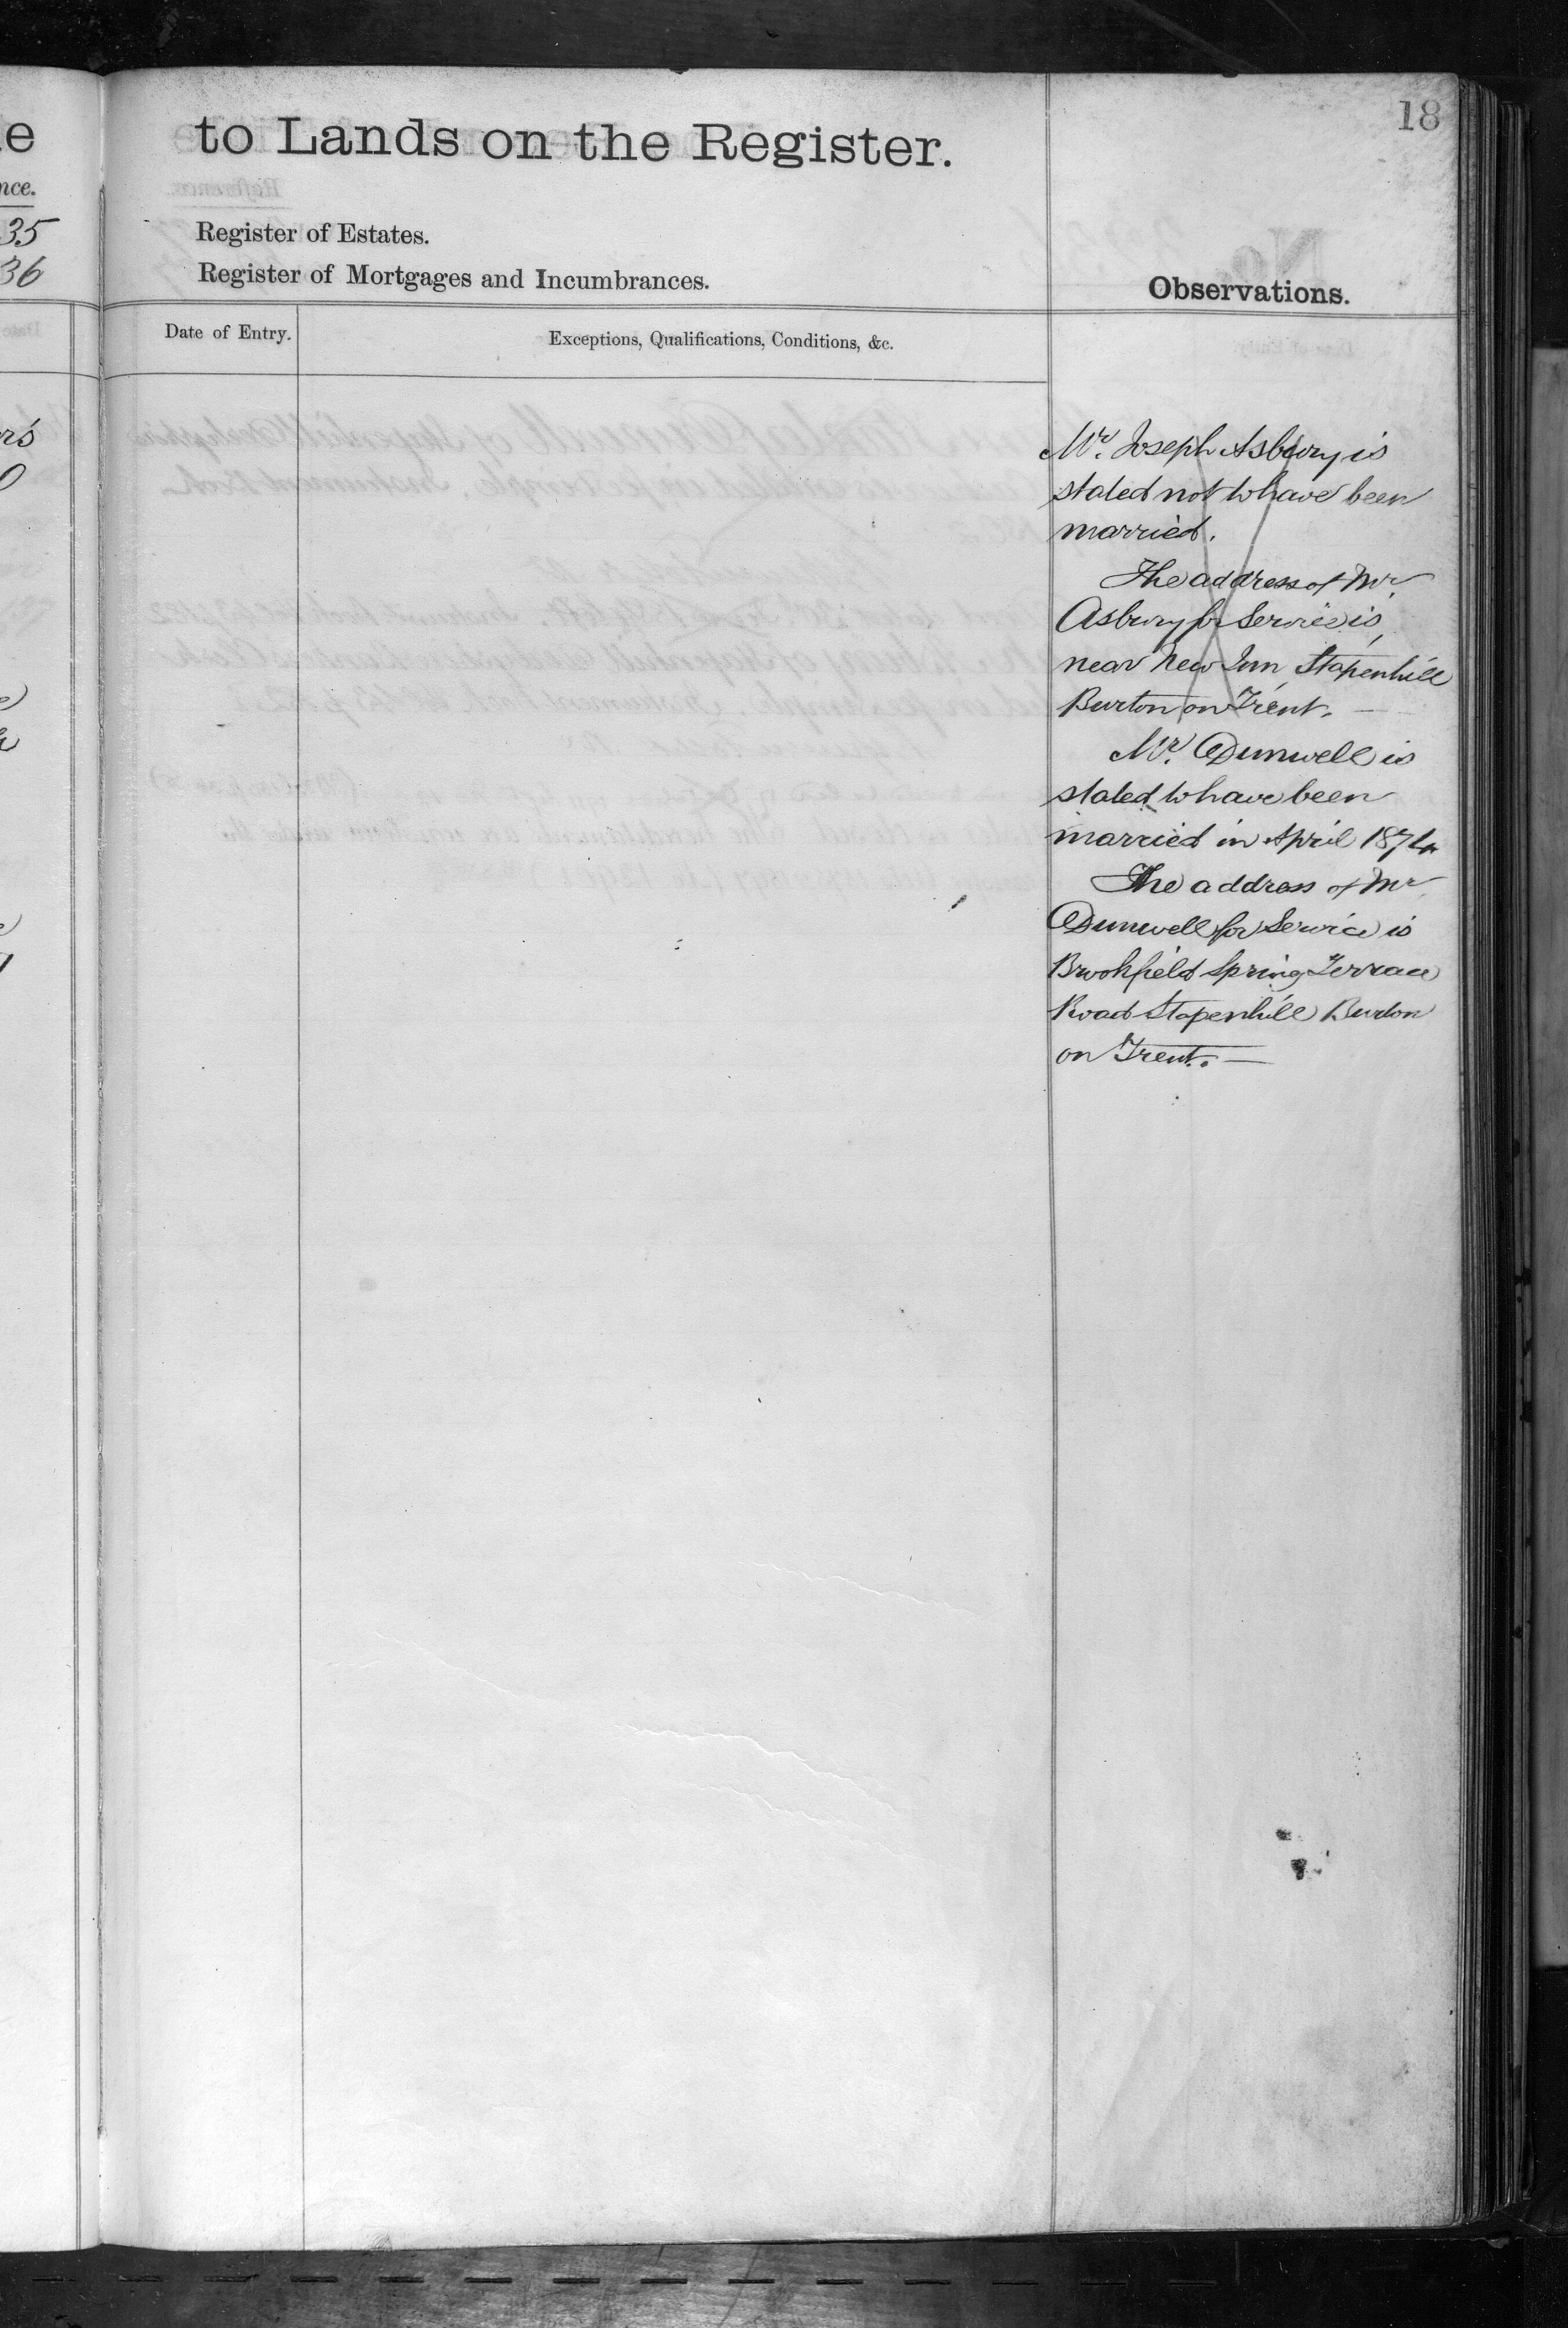 18
to Lands on the Register.
Register of Estates.
Register of Mortgages and Incumbrances.
Observations.
Date of Entry.
Exceptions, Qualifications, Conditions, &c.
nce.
35
36
Mr. Joseph Asbury is
stated not to have been
married.
The address of Mr.
Asbury for Service is,
near New Inn, Stapenhill
Burton on Trent. —
Mr. Dunwell is
stated to have been
married in April 1874
The address of Mr.
Dunwell for Service is
Brookfield Spring Terrace
Road Stapenhill Burton
on Trent. —